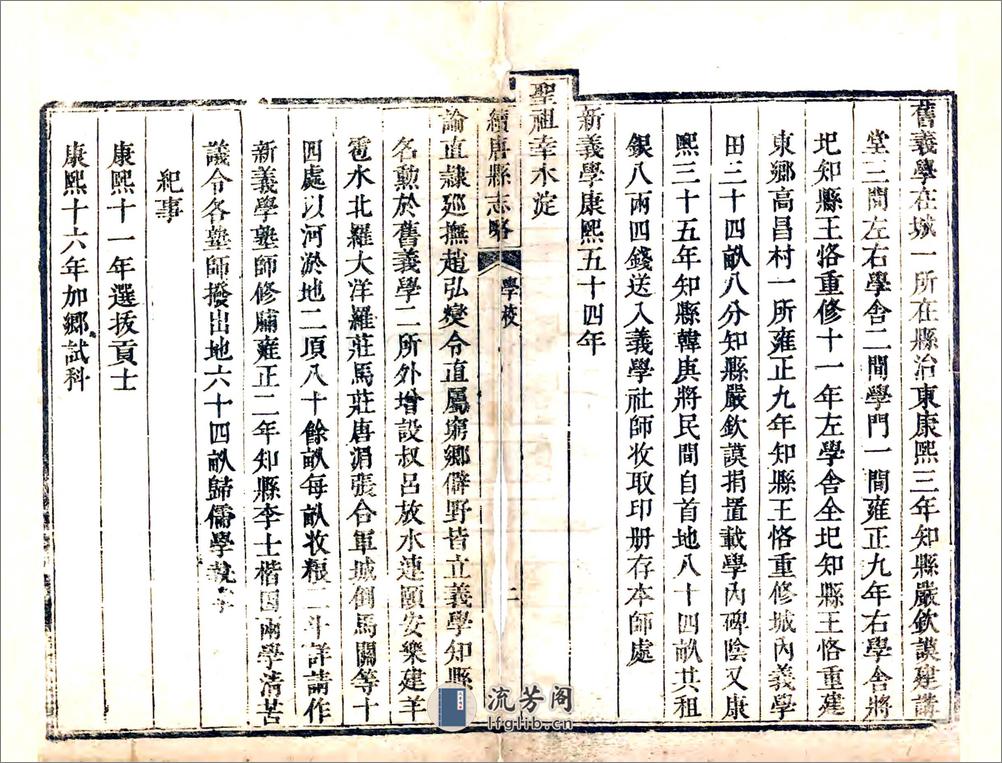 舊義學在城一所在縣治東康熙三年知縣嚴欽謨建講
堂三間左右學舍二間學門一間雍正九年右學舍將
圯知縣王恪重修十一年左學舍全圯知縣王恪重建
東鄉高昌村一所雍正九年知縣王恪重修城內義學
田三十四畝八分知縣嚴欽謨捐置載學內碑陰又康
熙三十五年知縣韓庚將民間自首地八十四畝共租
銀八兩四錢送入義學社師收取印册存本師處
新義學康熙五十四年
聖祖幸水淀
續唐縣志略
學校
二
諭直隷廵撫趙弘燮令直屬窮鄉僻野皆立義學知縣
名勳於舊義學二所外增設叔呂放水連頤安樂建羊
雹水北羅大洋羅莊馬莊唐涓張合軍城倒馬關等十
四處以河淤地二項八十餘畝每畝收粮二斗詳請作
新義學塾師修脯雍正二年知縣李士楷因兩學清苦
議令各塾師撥出地六十四畝歸儒學
紀事
康熙十一年選拔貢士
康熙十六年加鄉試科
流芳阁
lfglib.cn